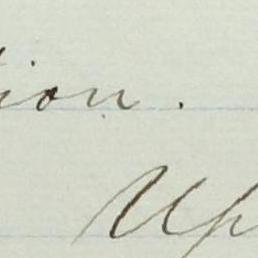 ion.
Up